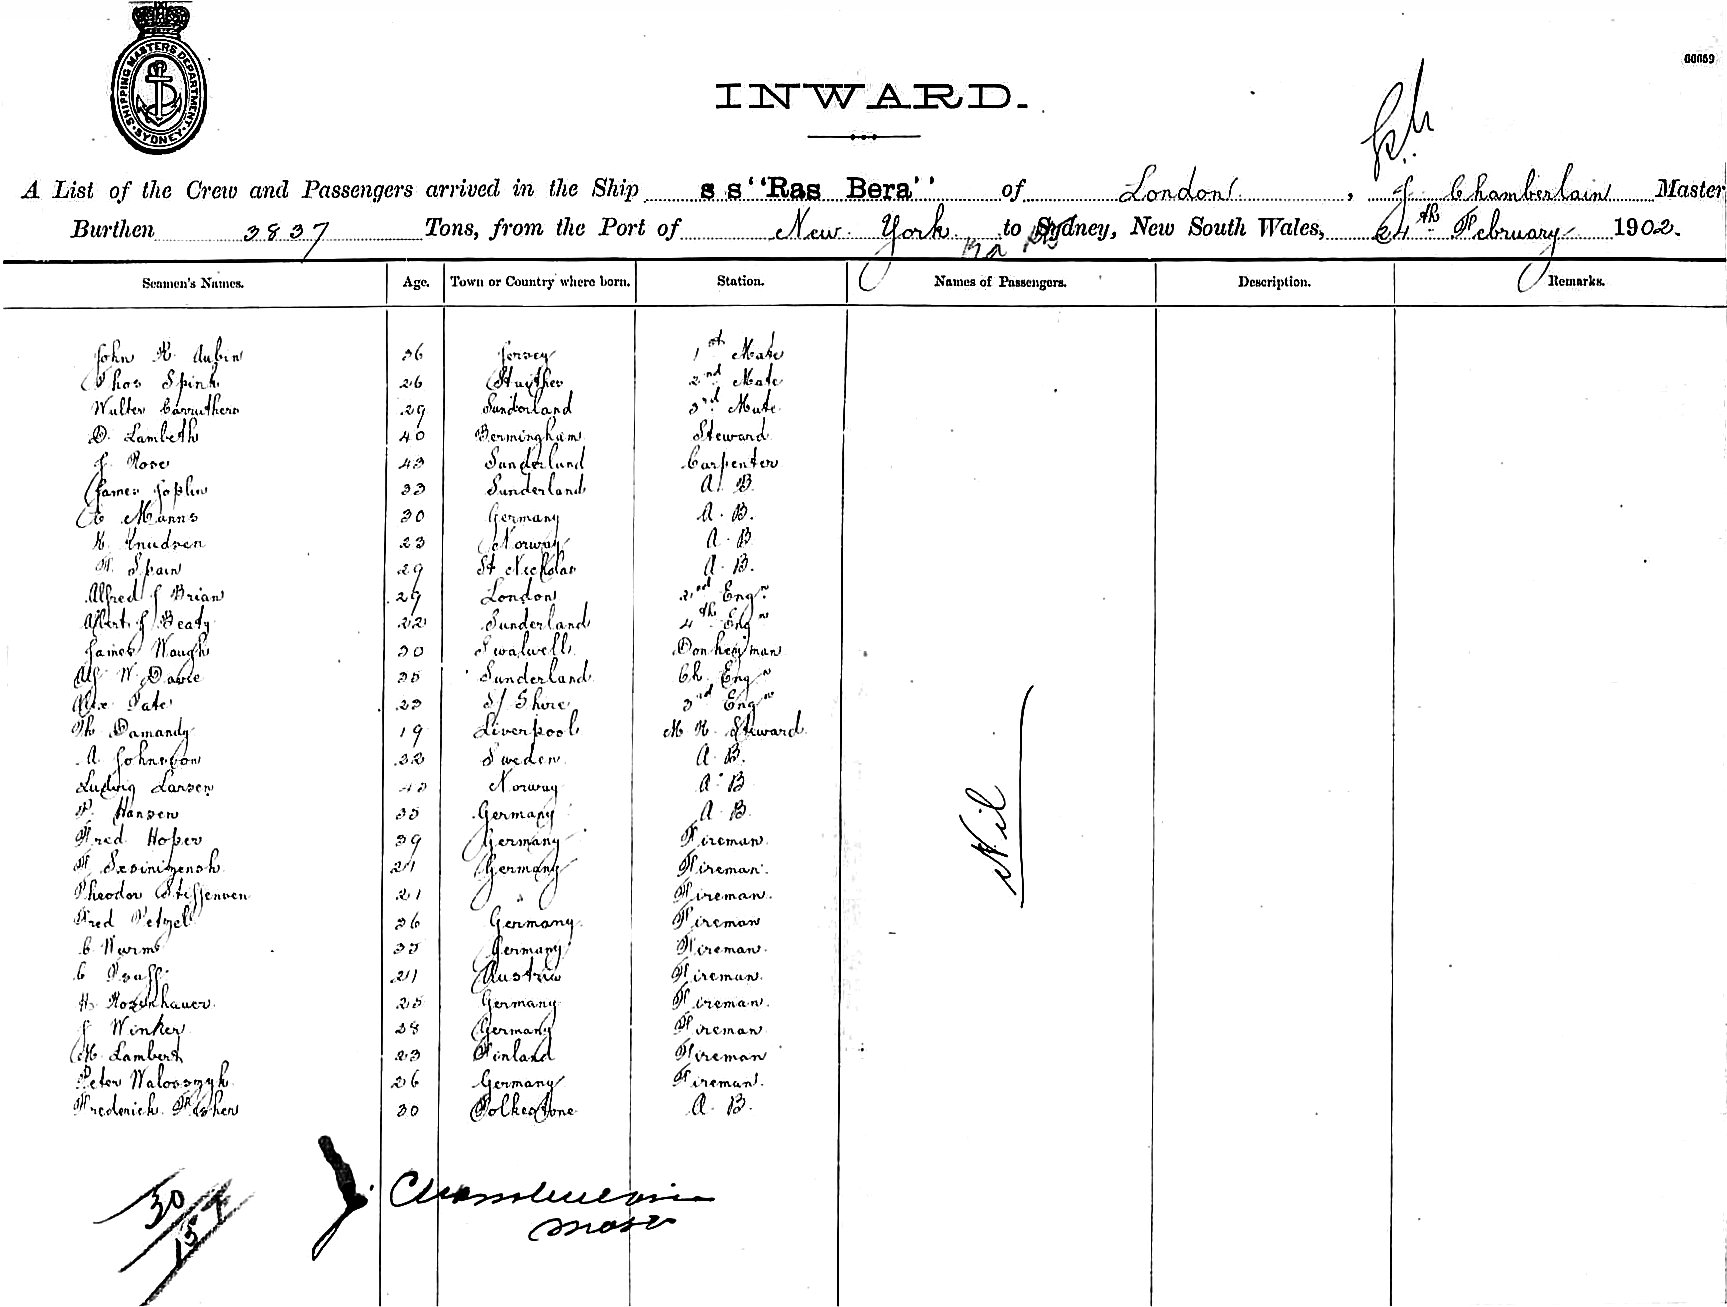 SHIPPING MASTERS DEPARTMENT · SYDNEY ·
00059
INWARD.
A List of the Crew and Passengers arrived in the Ship s s "Ras Bera" of London, J Chamberlain Master
Burthen 3837 Tons, from the Port of New York to Sydney, New South Wales, 24th February 1902.
Seamen's Names. Age. Town or Country where born. Station. Names of Passengers. Description. Remarks.
John R. Aubin 36 Jersey 1st Mate
Thos Spink 26 Staithes 2nd Mate
Walter Carruthers 29 Sunderland 3rd Mate
D. Lambeth 40 Bermingham Steward
J. Rose 43 Sunderland Carpenter
James Joplin 33 Sunderland A. B.
C Manns 30 Germany A. B.
K. Knudsen 23 Norway A. B
H. Spain 29 St Nicholas A. B.
Alfred J Brian 29 London 2nd Engr
Albert J Beaty 22 Sunderland 4th Engr
James Waugh 30 Swalwell Donkeyman
Alf W. Davie 35 Sunderland Ch. Engr
Alex Tate 23 S/ Shire 3rd Engr
Th Damandy 19 Liverpool M R. Steward
A. Johnsson 32 Sweden A. B.
Ludwig Larsen 43 Norway A. B
P. Hansen 35 Germany A. B.
Fred Hoper 39 Germany Fireman
F 24 Germany Fireman
Theodor 21 " Fireman.
Fred Petzel 36 Germany Fireman
C Wurms 35 Germany Fireman.
C Pfaff 24 Austria Fireman.
H. Rosenhauer. 25 Germany Fireman.
J Winker 28 Germany Fireman
M. Lambert 23 Finland Fireman
Peter Walosszyk 26 Germany Fireman.
Frederick Fisher 30 Folkestone A. B.
Nil
J. Chamberlain
Master
30